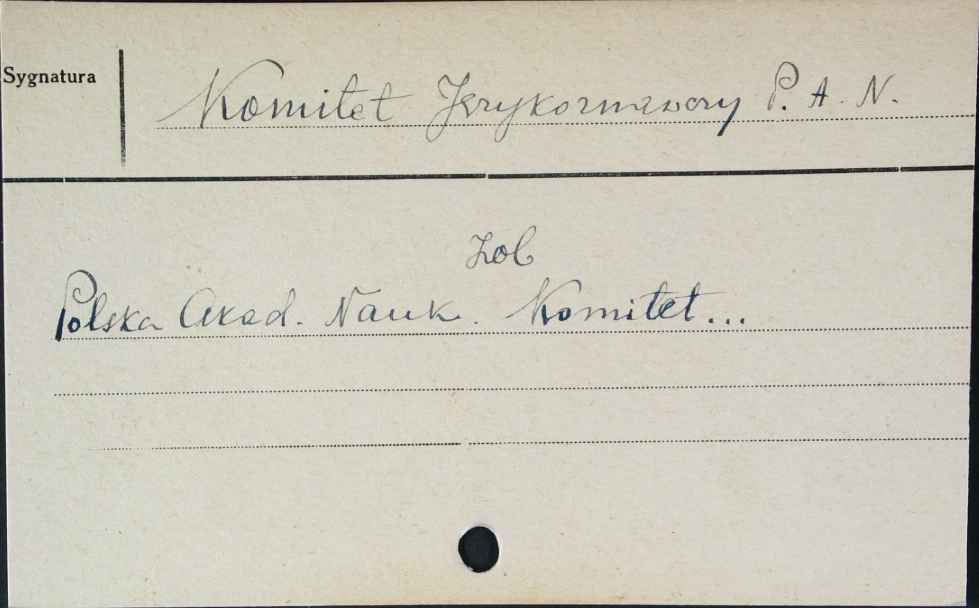 Sygnatura
Komitet Językoznawczy P. A. N.
Zob
Polska Akad. Nauk. Komitet...